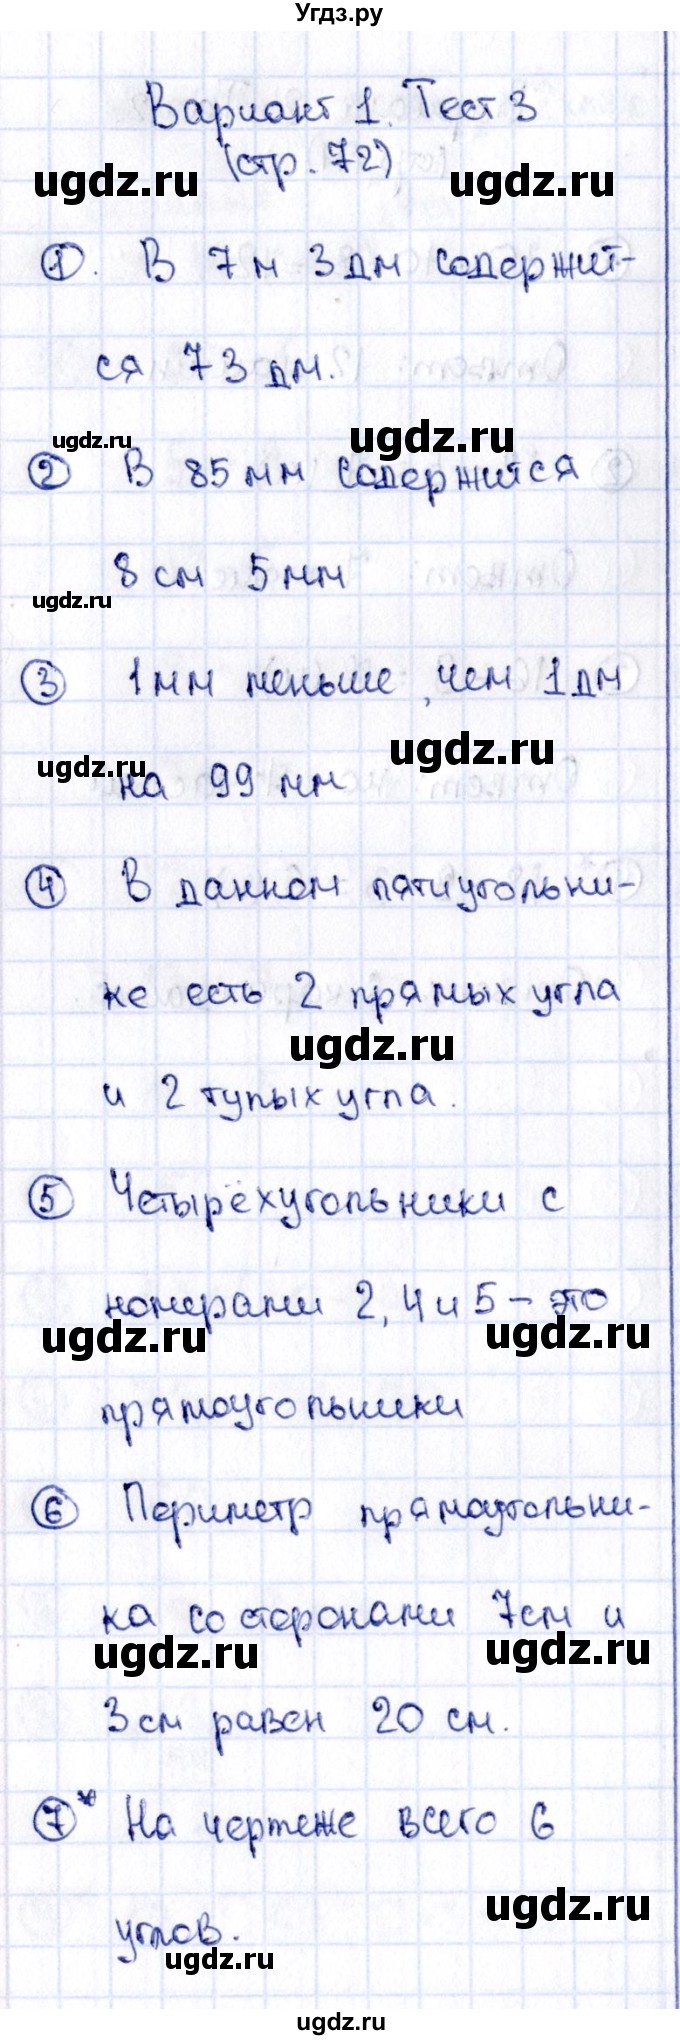 Угдз.ру
Вариант 1. Тест 3
(стр. 72)
ugdz.ru ugdz.ru
1. В 7 м 3 дм содержит-
ся 73 дм.
ugdz.ru ugdz.ru
2 В 85 мм содержится
8 см 5 мм
ugdz.ru
3 1 мм меньше, чем 1 дм
ugdz.ru ugdz.ru
на 99 мм
4 В данном пятиугольни-
ке есть 2 прямых угла
ugdz.ru
и 2 тупых угла.
5 Четырёхугольники с
номерами 2, 4 и 5 – это
ugdz.ru ugdz.ru
прямоугольники
6 Периметр прямоугольни-
ка со сторонами 7 см и
ugdz.ru ugdz.ru
3 см равен 20 см.
7* На чертеже всего 6
ugdz.ru
углов.
ugdz.ru
ugdz.ru